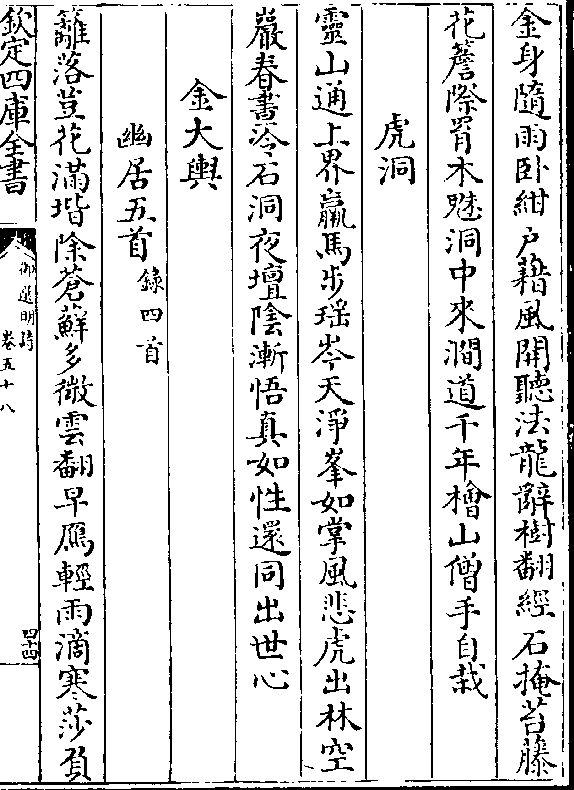 金身隨雨卧紺戸藉風開聽法龍辭樹翻經石掩苔藤
花簷際罥木魅洞中來澗道千年檜山僧手自栽
虎洞
靈山通上界羸馬步瑶岑天淨峯如掌風悲虎出林空
巖春晝冷石洞夜壇陰漸悟真如性還同出世心
金大輿
幽居五首錄四首
籬落荳花滿堦除蒼蘚多微雲翻早鴈輕雨滴寒莎負
欽定四庫全書
御選明詩
卷五十八
四十四